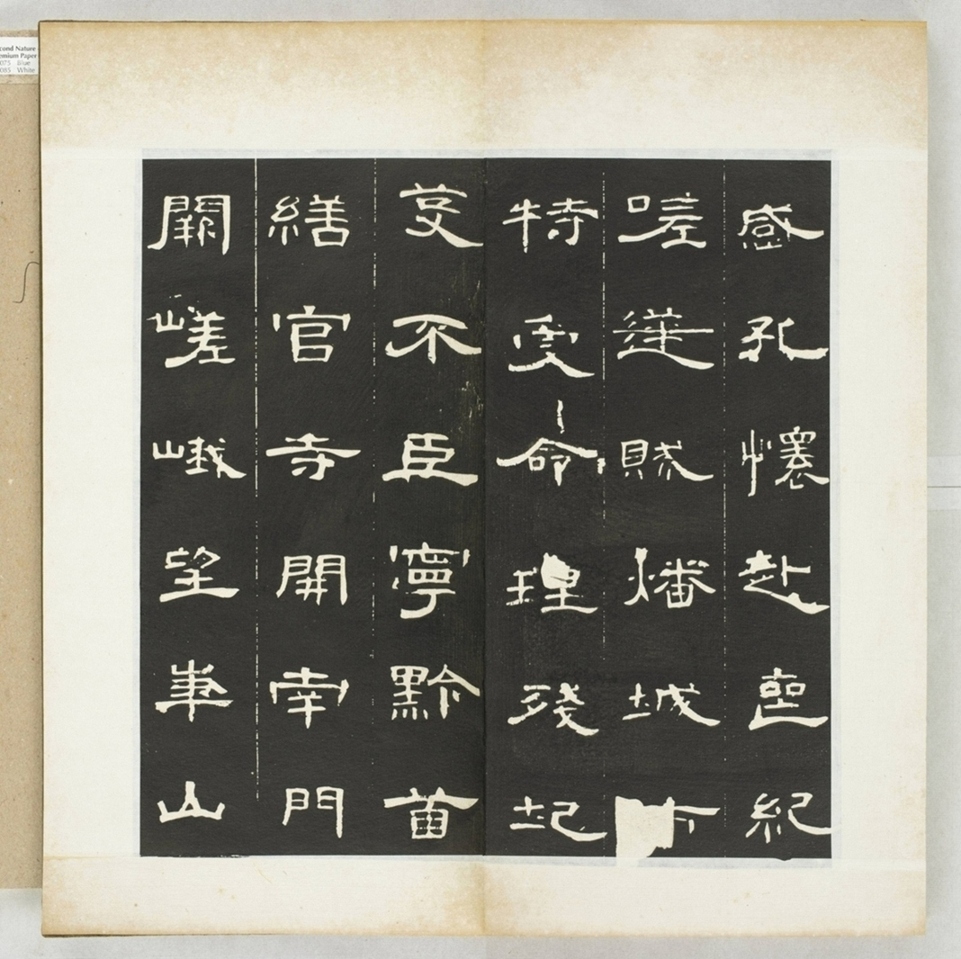 感孔懷赴喪紀
嗟逆賊燔城
特受命理殘圮
芟不臣寧黔首
繕官寺開南門
闕嵯峨望華山
Nature
Paper
Blue
White